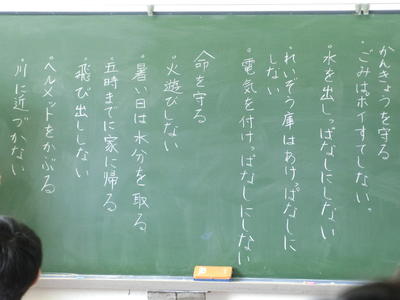 かんきょうを守る
・ごみはポイすてしない。
・水を出しっぱなしにしない
・れいぞう庫はあけっぱなしに
しない
・電気を付けっぱなしにしない
命を守る
・火遊びしない
・暑い日は水分を取る
・五時までに家に帰る
・飛び出ししない
・ヘルメットをかぶる
・川に近づかない